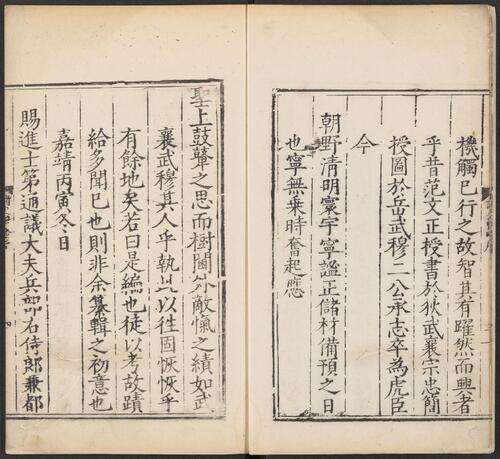 機觸已行之故智其有躍然而興者
乎昔范文正授書於狄武襄宗忠簡
授圖於岳武穆二公承志卒為虎臣
今
朝野清明寰宇寧謐正儲材備預之日
也寧無乗時奮起應
聖上鼓鼙之思而樹閫外敵愾之績如武
襄武穆其人乎執此以徃固恢恢乎
有餘地矣若曰是編也徒以考故蹟
給多聞已也則非余纂輯之初意也
嘉靖丙寅冬日
賜進士第通議大夫兵部右侍郎兼都